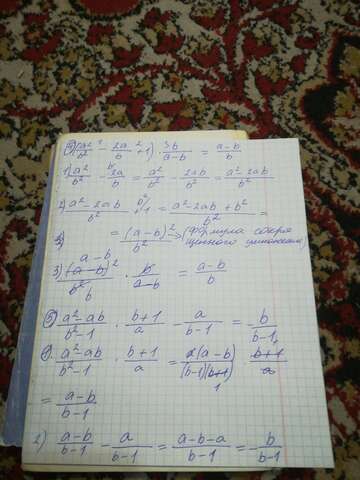 ④(a²/b² - 2a/b + 1) · b/(a-b) = (a-b)/b
1) a²/b² - 2a/b = a²/b² - 2ab/b² = (a²-2ab)/b²
2) (a²-2ab)/b² + 1 = (a²-2ab+b²)/b² =
= (a-b)²/b² → (формула сокра
щенного умножения)
3) (a-b)²/b² · b/(a-b) = (a-b)/b
⑤ (a²-ab)/(b²-1) · (b+1)/a - a/(b-1) = -b/(b-1)
1. (a²-ab)/(b²-1) · (b+1)/a = a(a-b)/((b-1)(b+1)) · (b+1)/a
= (a-b)/(b-1)
2) (a-b)/(b-1) - a/(b-1) = (a-b-a)/(b-1) = -b/(b-1)